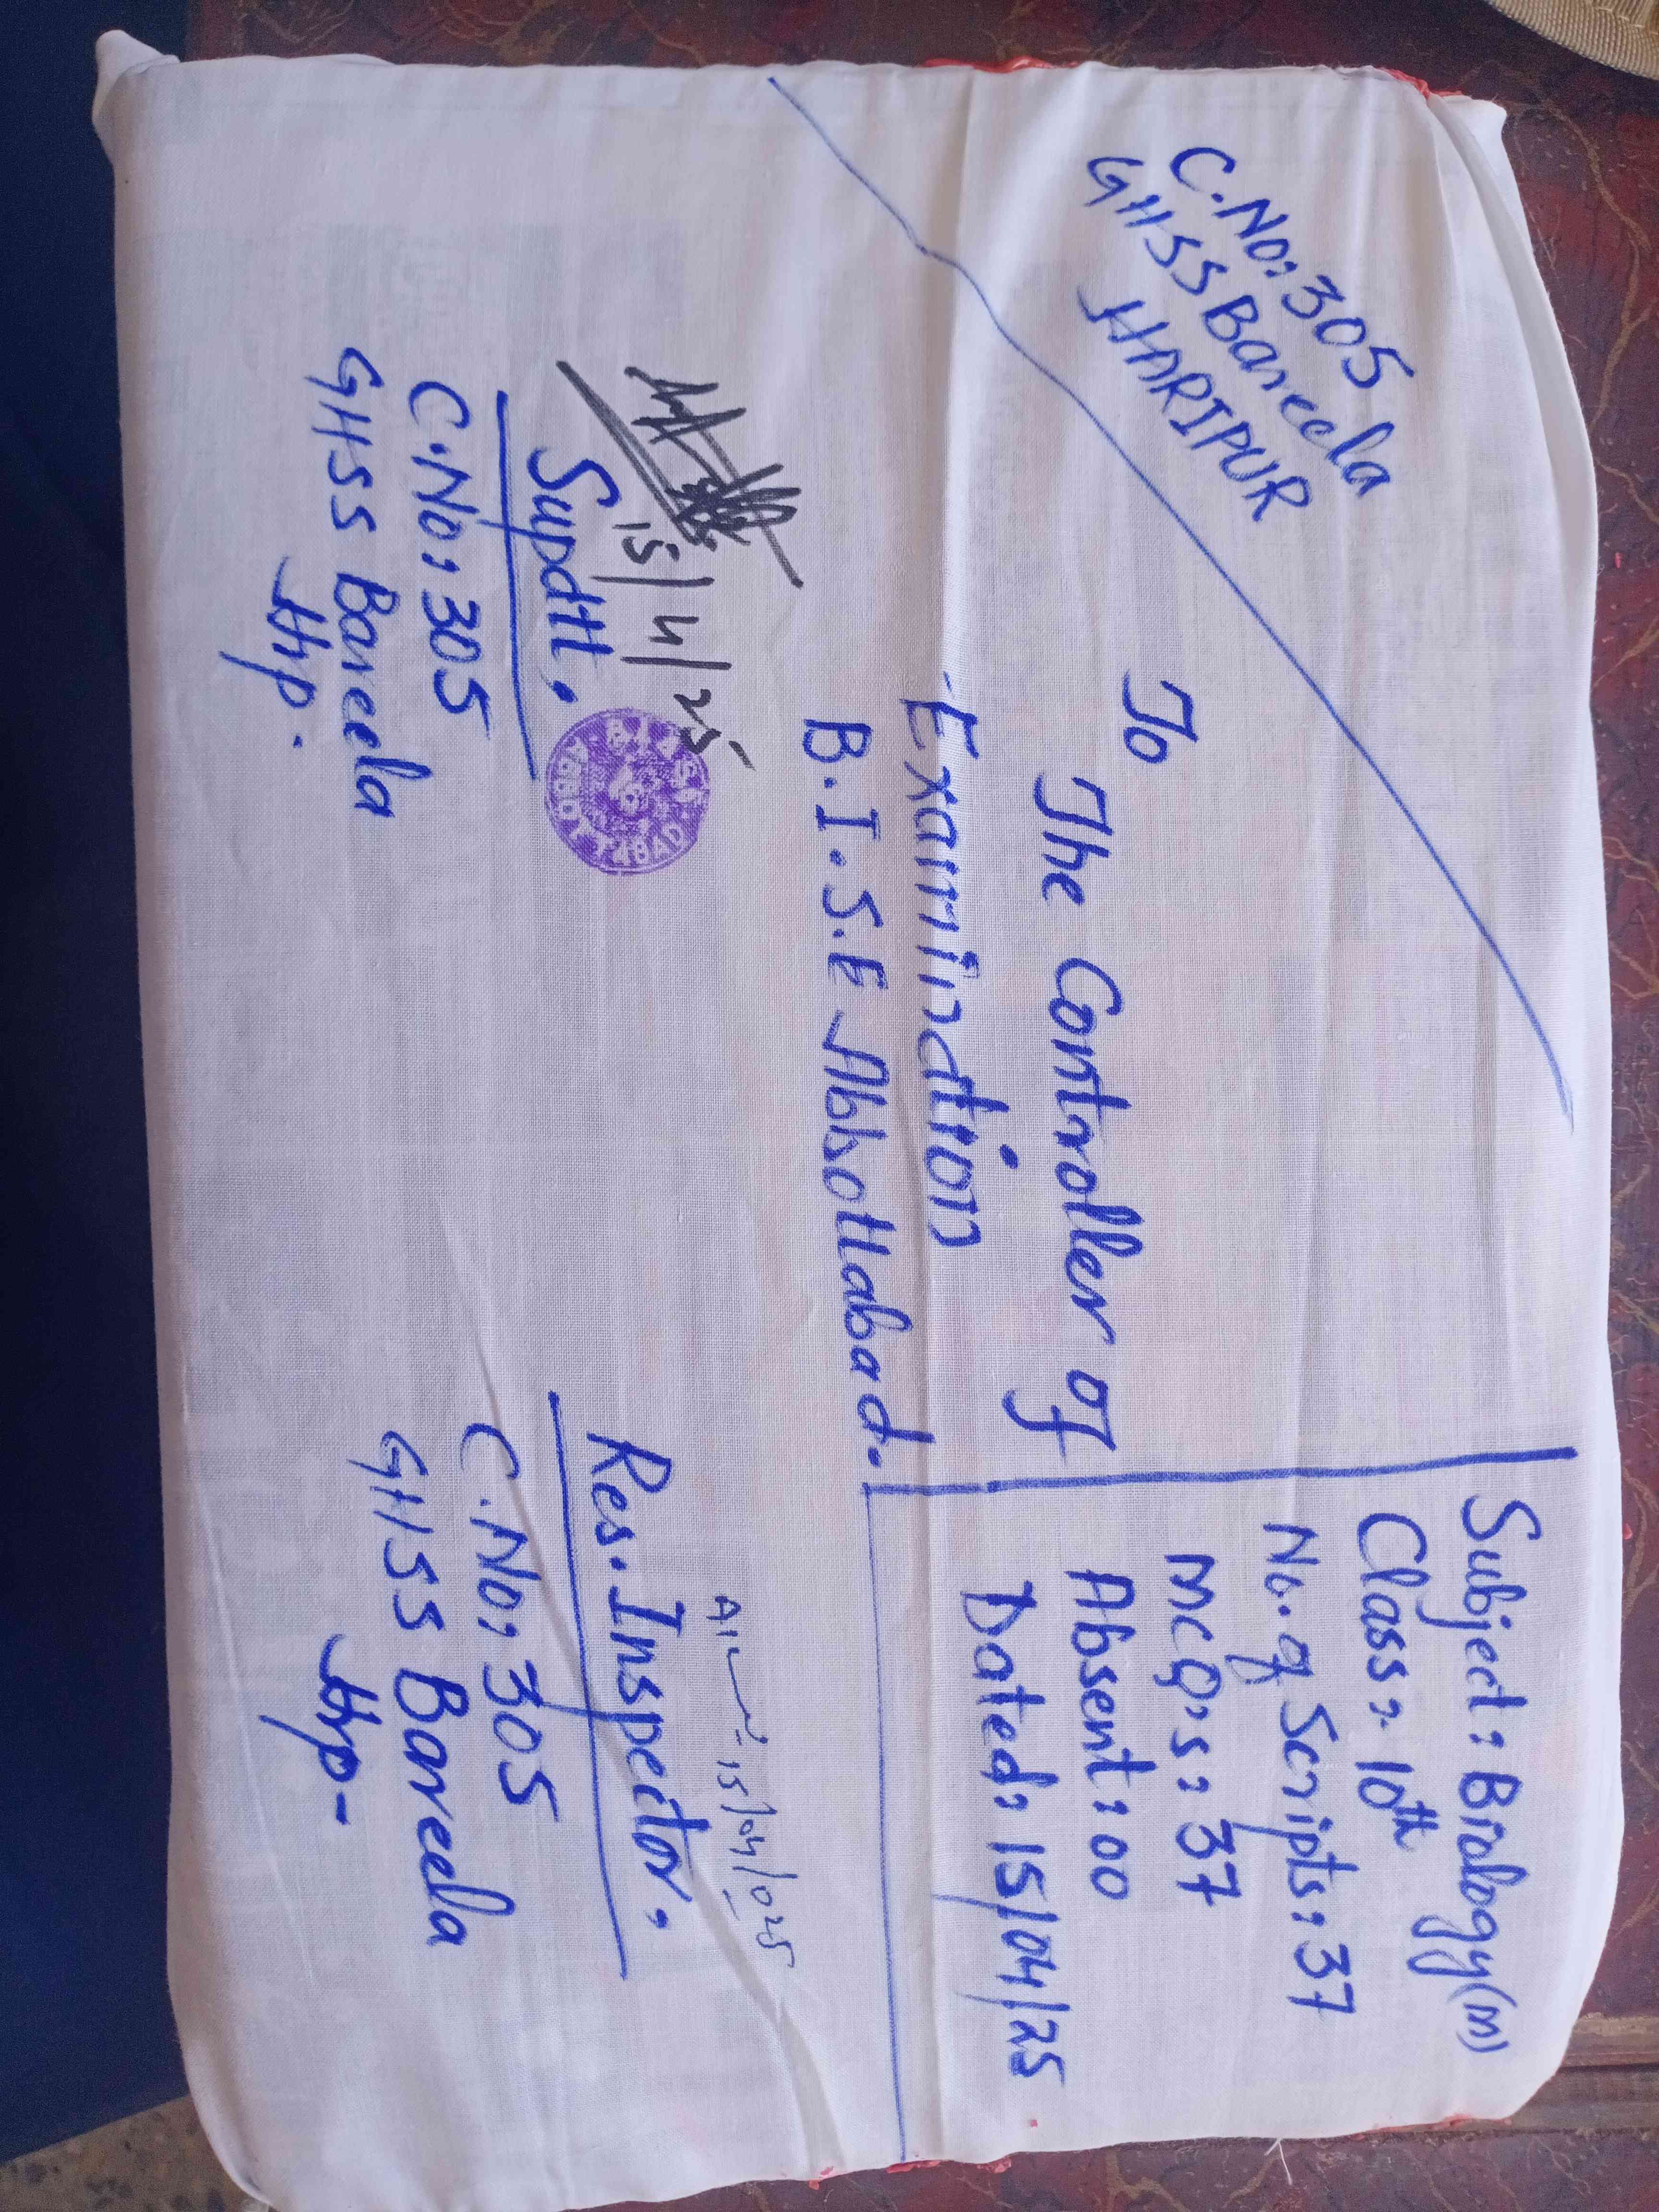 C.No: 305
GHSS Bareela
HARIPUR
Subject: Biology(m)
Class: 10th
No. of Scripts: 37
MCQ's: 37
Absent: 00
Dated: 15/04/25
To
The Controller of
Examination
B.I.S.E Abbottabad.
15/4/25
Supdtt.
C.No: 305
GHSS Bareela
Hrp.
15/04/025
Res. Inspector.
C.No: 305
GHSS Bareela
Hrp-